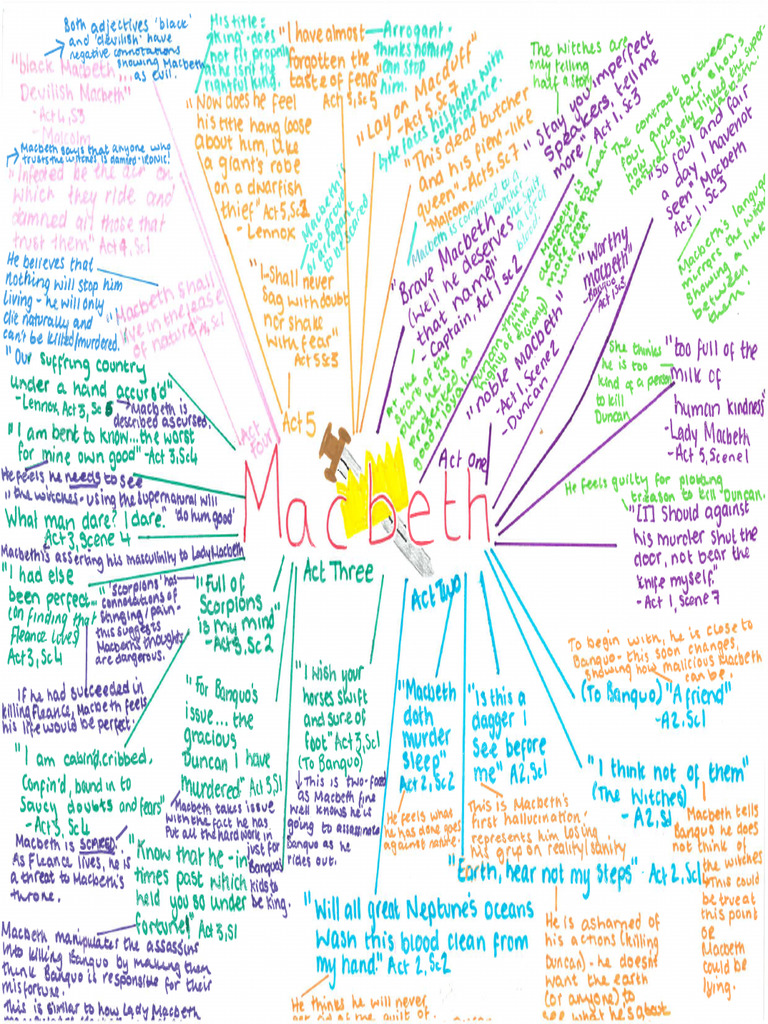 Both adjectives 'black'
and 'devilish' have
negative connotations
showing Macbeth
as evil.
"black Macbeth...
Devilish Macbeth"
- Act 4, S3
- Malcolm
Macbeth says that anyone who
trusts the witches is damned - ironic!
"Infected be the air on
which they ride and
damned all those that
trust them" Act 4, Sc1
He believes that
nothing will stop him
living - he will only
die naturally and
can't be killed/murdered.
"Macbeth shall
live in the lease
of nature"
Act four
His title:
'king' does
not fit properly
as he isn't the
rightful king.
"Now does he feel
his title hang loose
about him, like
a giant's robe
on a dwarfish
thief" Act 5, Sc2
- Lennox
"I have almost
forgotten the
taste of fears"
Act 5, Sc 5
Arrogant -
thinks nothing
can stop
him.
Macbeth is
too proud
or arrogant
to be scared
"I-Shall never
Sag with doubt
nor shake
with fear"
Act 5 Sc3
Act 5
"Lay on Macduff"
- Act 5, Sc 7
battle with
confidence.
"This dead butcher
and his fiend-like
queen" - Act 5, Sc 7
- Malcom.
Macbeth is compared to a
butcher
a lot of
blood.
The witches are
only telling
half a story
"Stay you imperfect
Speakers, tell me
more" Act 1, Sc3
Macbeth is
desperate to hear
more from the
witches
The contrast between
foul and fair shows
how closely linked the super-
natural is to Macbeth.
"So foul and fair
a day I have not
seen" Macbeth
Act 1, Sc3
Macbeth's language
mirrors the witches
showing a link
between
them.
"Brave Macbeth
(well he deserves
that name)"
- Captain, Act 1, Sc2
At the
start of the
play he is
presented as
good + loyal
Duncan thinks
highly of him
"noble Macbeth"
- Act 1, Scene 2
- Duncan
"Worthy
Macbeth"
- Banquo
Act 1 Sc3
Act One
She thinks
he is too
kind of a person
to kill
Duncan
"too full of the
milk of
human kindness"
- Lady Macbeth
- Act 5, Scene 1
He feels guilty for plotting
treason to kill Duncan.
"[I] Should against
his murder shut the
door, not bear the
knife myself."
- Act 1, Scene 7
Macbeth
"Our suffrung country
under a hand accurs'd"
- Lennox Act 3, Sc 6
Macbeth is
described as cursed.
"I am bent to know... the worst
for mine own good" - Act 3, Sc4
He feels he needs to see
the witches - using the supernatural will
'do him good'
What man dare? I dare."
Act 3, Scene 4
Macbeth's asserting his masculinity to Lady Macbeth
"I had else
been perfect"
(on finding that
Fleance lives)
Act 3, Sc 4
If he had succeeded in
killing Fleance, Macbeth feels
his life would be perfect.
'Scorpions' has
connotations of
stinging/pain -
this suggests
Macbeth's thoughts
are dangerous.
"Full of
Scorpions
is my mind"
- Act 3, Sc 2
Act Three
"I am cabin'd, cribbed,
Confin'd, bound in to
Saucy doubts and fears"
- Act 3, Sc 4
Macbeth is SCARED.
As Fleance lives, he is
a threat to Macbeth's
throne.
"For Banquo's
issue... the
gracious
Duncan I have
murdered" Act 3, S1
Macbeth takes issue
with the fact he has
Put all the hard work in
just for
Banquo's
kids to
be king.
"I wish your
horses swift
and sure of
foot" Act 3, Sc1
(To Banquo)
This is two-faced
as Macbeth fine
well knows he is
going to assassinate
Banquo as he
rides out.
"Know that he - in
times past which
held you so under
fortune" Act 3, S1
Macbeth manipulates the assassins
into killing Banquo by making them
think Banquo is responsible for their
misfortune.
This is similar to how Lady Macbeth
Act Two
"Macbeth
doth
murder
Sleep"
Act 2, Sc2
He feels what
he has done goes
against nature.
"Is this a
dagger I
See before
me" A2, Sc1
This is Macbeth's
first hallucination -
represents him losing
his grip on reality/sanity
To begin with, he is close to
Banquo - this soon changes,
showing how malicious Macbeth
can be.
(To Banquo) "A friend"
- A2, Sc1
"I think not of them"
(The Witches)
- A2, S1
Macbeth tells
Banquo he does
not think of
the witches
This could
be true at
this point
or
Macbeth
could be
lying.
"Earth, hear not my Steps" - Act 2, Sc1
He is ashamed of
his actions (killing
Duncan) - he doesn't
want the earth
(or anyone) to
see what he's about
"Will all great Neptune's oceans
Wash this blood clean from
my hand." Act 2, Sc2
He thinks he will never
get rid of the guilt of